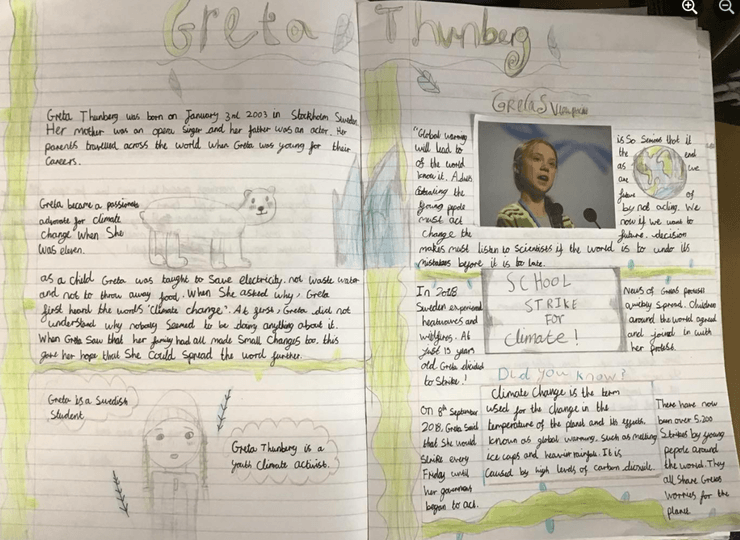 Greta Thunberg
Greta Thunberg was born on January 3rd 2003 in Stockholm Sweden.
Her mother was an opera singer and her father was an actor. Her
parents travelled across the world when Greta was young for their
careers.
Greta became a passionate
advocate for climate
change when she
was eleven.
as a child Greta was taught to save electricity, not waste water
and not to throw away food. When she asked why, Greta
first heard the words 'climate change'. At first, Greta did not
understand why nobody seemed to be doing anything about it.
When Greta saw that her family had all made small changes too, this
gave her hope that she could spread the word further.
Greta is a Swedish
Student
Greta Thunberg is a
youth climate activist.
Gretas Viewpoint
"Global warming is so serious that it
will lead to the end
of the world as we
know it. Adults are
stealing the future of
young pepole by not acting. We
must act now if we want to
change the future. decision
makes must listen to scientists if the world is to undo its
mistakes before it is to late.
In 2018
Sweden experienced
heatwaves and
wildfires. At
just 15 years
old Greta decided
to strike!
SCHOOL
STRIKE
FOR
Climate!
News of Gretas protest
quickly spread. Children
around the world agreed
and joined in with
her protest.
Did you know?
Climate Change is the term
used for the change in the
temperature of the planet and its effects,
known as global warming, such as melting
ice caps and heavier rainfall. It is
caused by high levels of carbon dioxide.
On 8th September
2018, Greta said
that she would
strike every
Friday until
her government
began to act.
There have now
been over 5,200
strikes by young
pepole around
the world. They
all share Gretas
worries for the
planet